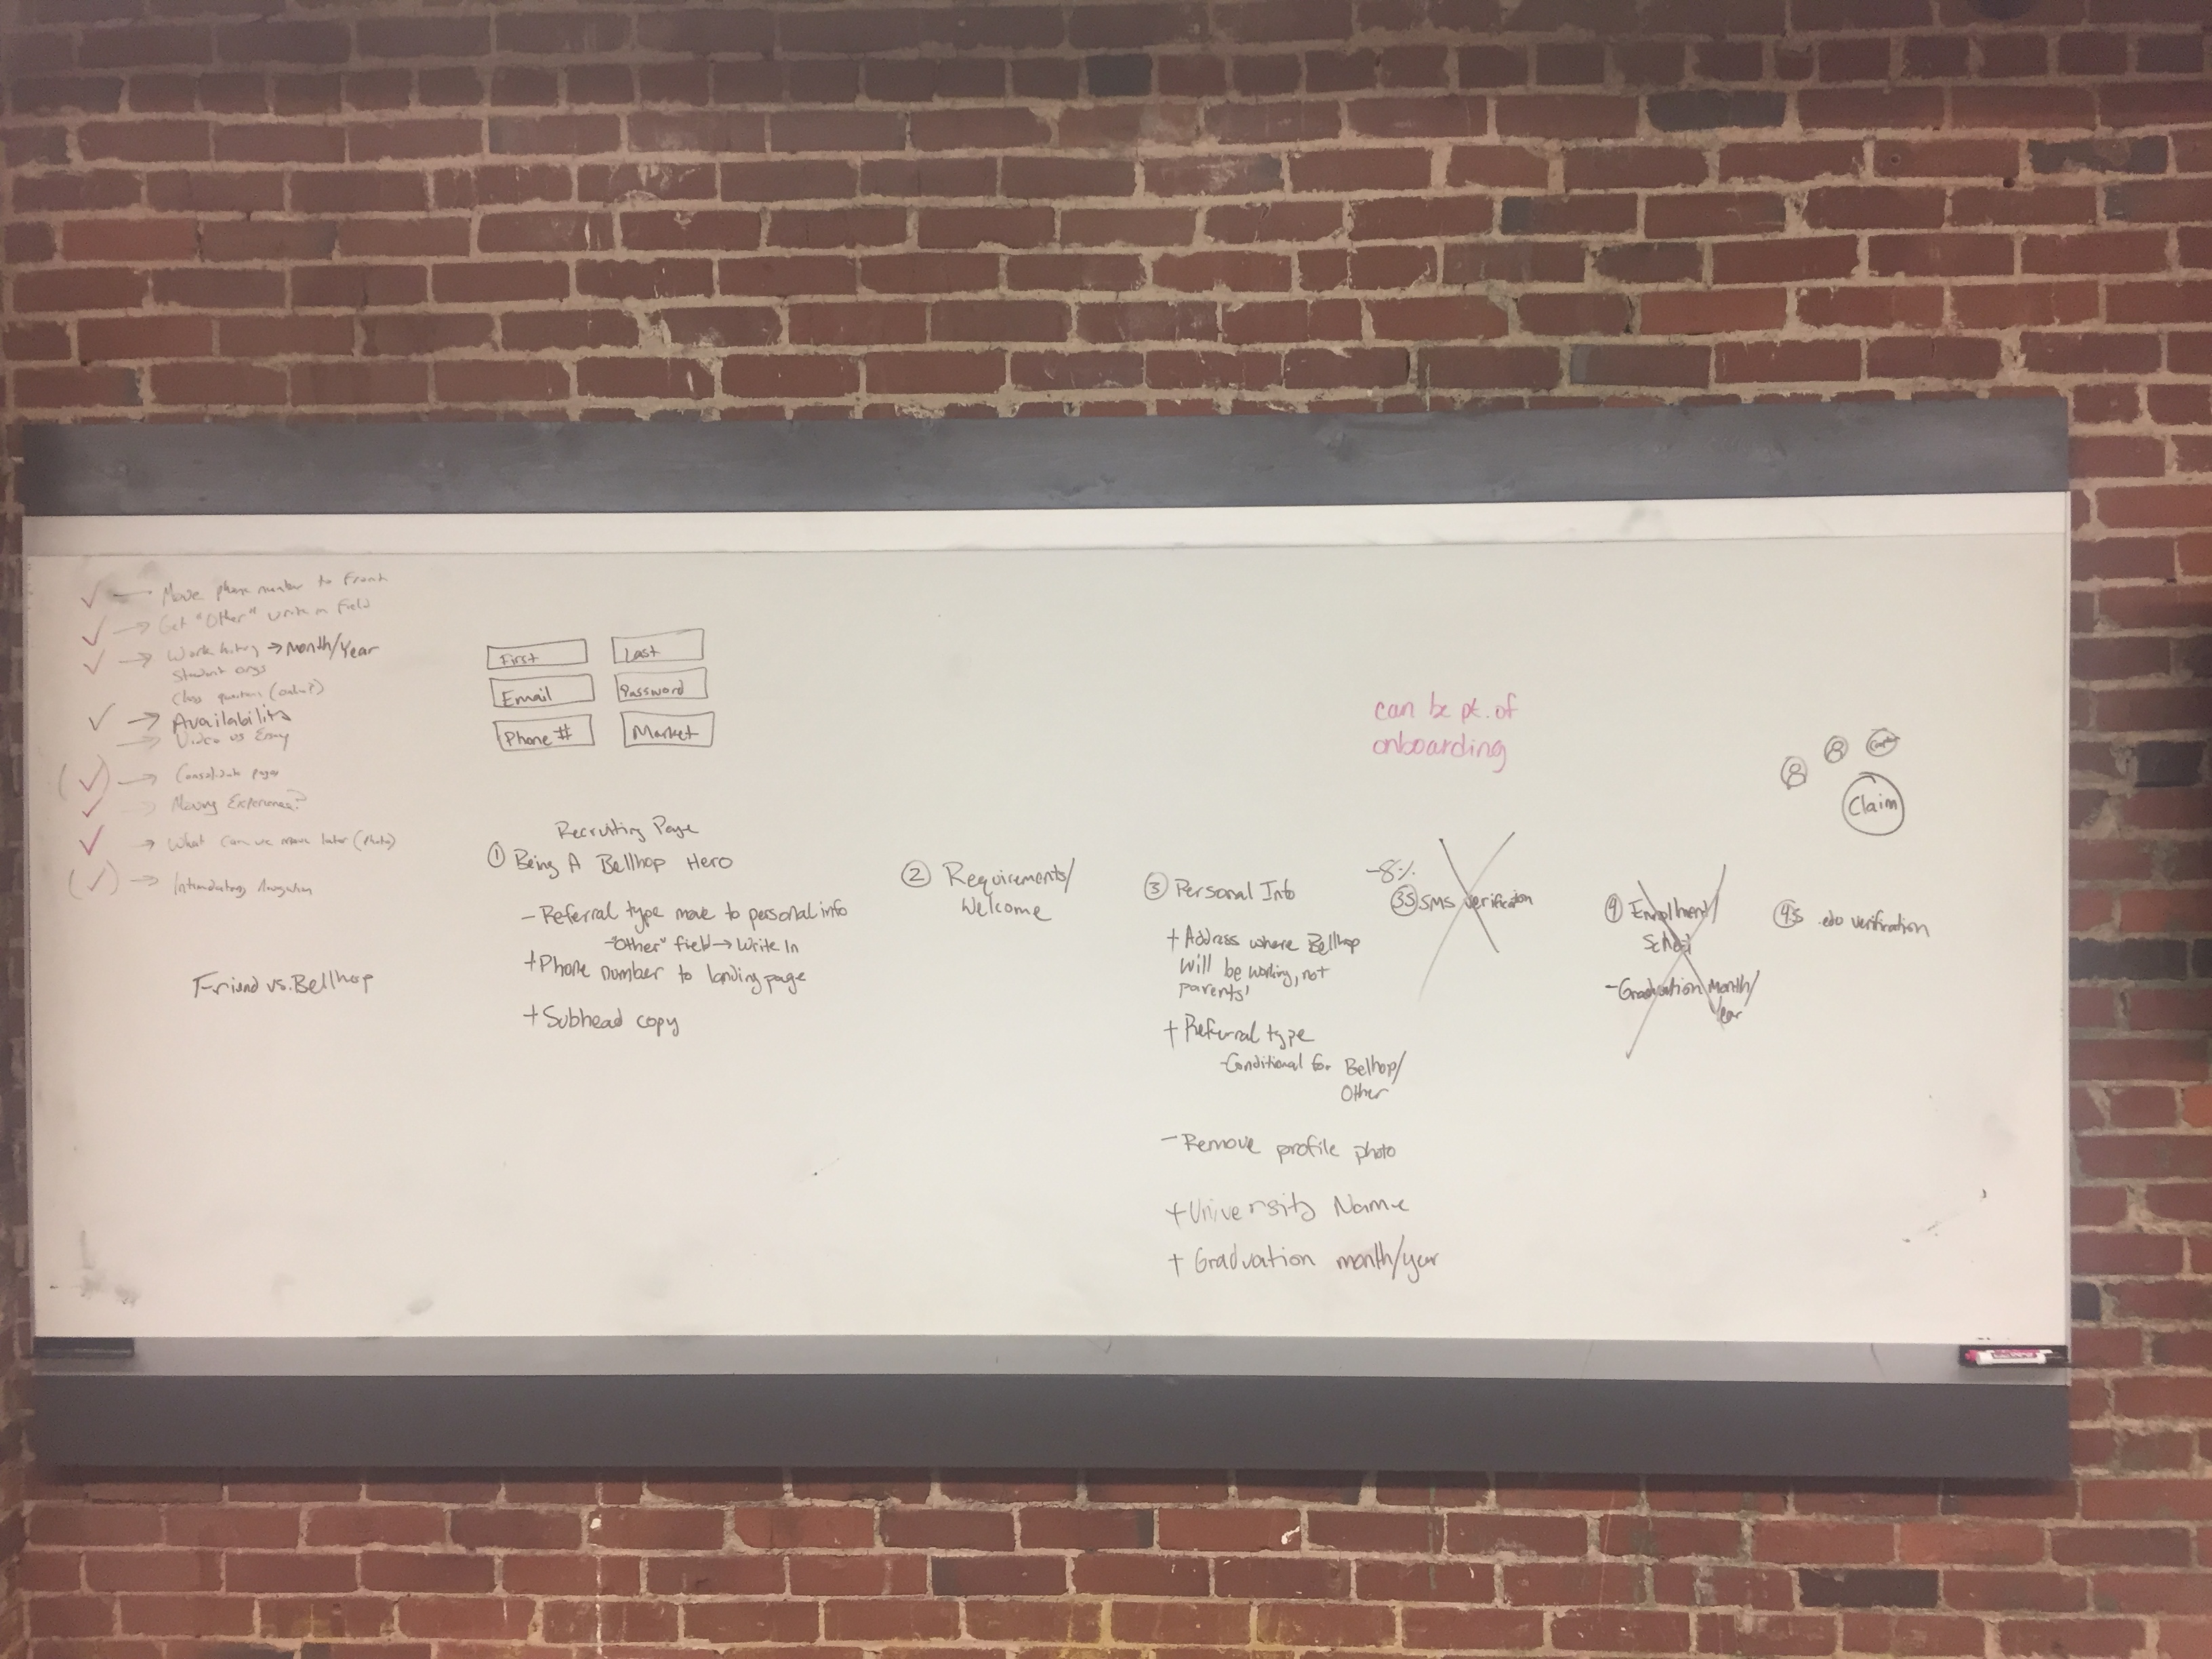 Move phone number to Front
Get "Other" write in field
Work history → Month/Year
Student orgs
Class question
Availability
Video vs Essay
Consolidate pages
Moving Experience?
What can we move later (photo)
Friend vs. Bellhop
First
Last
Email
Password
Phone #
Market
Recruiting Page
① Being A Bellhop Hero
- Referral type move to personal info
- "Other" field → Write In
+ Phone number to landing page
+ Subhead copy
② Requirements/
Welcome
③ Personal Info
+ Address where Bellhop
will be working, not
parents'
+ Referral type
- Conditional for Bellhop/
Other
- Remove profile photo
+ University Name
+ Graduation month/year
can be pt. of
onboarding
-8%
3.5 SMS verification
④ Enrollment/
School
- Graduation Month/
Year
4.5 .edu verification
Claim